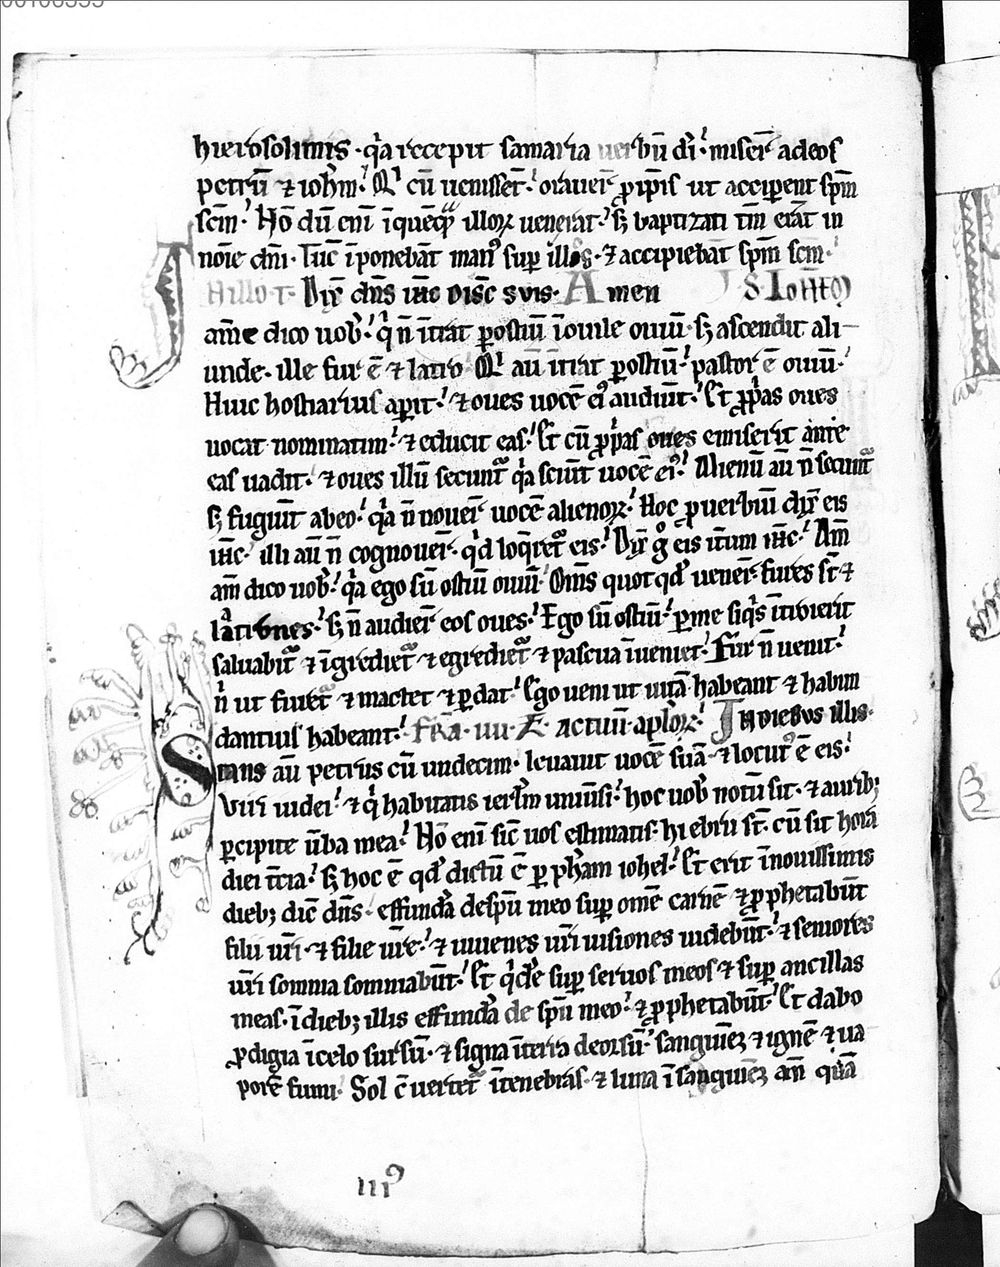 hierosolimis · q̾a recepit samaria uerbū dī · miser̄ ad eos
petrū ⁊ ioh̄m · Qı cū uenissēt · orauer̄ ꝓ ip̄is ut acciperent sp̄m
sc̄m · Nō dū enī ī quēq̄ illoꝝ uenerat · s̄ baptizati tm̄ erāt in
noīe dn̄i · Tūc īponebāt man⁹ sup̱ illos · ⁊ accipiebāt sp̄m sc̄m ·
In illo · t · Dix̄ dn̄s ih̄c disc̄ suis · Amen S · Ioh̄
am̄e dico uob̄ · q̄ n̄ īt̾at ꝑ ostiū ī ouile ouiū · s̄ ascendit ali-
unde · ille fur ē ⁊ latro · Qı aū īt̾at ꝑ ostiū · pastor ē ouiū ·
Huic hostiarius aꝑit · ⁊ oues uocē ei⁹ audiūt · Et ꝓp̾as oues
uocat nominatim · ⁊ educit eas · Et cū ꝓp̾as oues emiserit ante
eas uadit · ⁊ oues illū secunt̄ q̾a sciūt uocē ei⁹ · Alienū aū n̄ secunt̄
s̄ fugiūt ab eo · q̾a n̄ nouer̄ uocē alienoꝝ · Hoc ꝓuerbiū dix̄ eis
ih̄c · illi aū n̄ cognouer̄ · q̾d loq̄ret̄ eis · Dix̄ g̊ eis it̄um ih̄c · Am̄
am̄ dico uob̄ · q̾a ego sū ostiū ouiū · Om̄s quotqd̄ uener̄ · fures st̄ ⁊
latrones · s̄ n̄ audier̄ eos oues · Ego sū ostiū · ꝑ me siq̾s īt̾oierit
saluabit̄ ⁊ īgrediet̄ ⁊ egrediet̄ ⁊ pascua īueniet · Fur n̄ uenit ·
n̾ ut furet̄ ⁊ mactet ⁊ ꝑdat · Ego ueni ut uitā habeant ⁊ habun
dantius habeant · Fr̄a · iiii · Ł actuū ap̄loꝝ · In diebus illis ·
Stans aū petrus cū undecim · leuauit uocē suā · ⁊ locut⁹ ē eis ·
Uiri iudei · ⁊ q̾ habitatis ierl̄m uniūsi · hoc uob̄ notū sit · ⁊ aurib;
ꝑcipite ūba mea · Nō enī sic̄ uos estimatis · hi ebrii st̄ · cū sit hora
diei t̄cia · s̄ hoc ē qd̄ dictū ē ꝑ ꝓph̄am iohel · Et erit ī nouissimis
dieb; dic̄ dn̄s · effundā de sp̄u meo sup̱ omē carnē ⁊ ꝓphetabūt
filii ur̄i · ⁊ filie ur̄e · ⁊ iuuenes ur̄i uisiones uidebūt · ⁊ seniores
ur̄i somnia somniabūt · Et q̾dē sup̱ seruos meos ⁊ sup̱ ancillas
meas · ī dieb; illis effundā de sp̄u meo · ⁊ ꝓphetabūt · Et dabo
ꝓdigia ī celo sursū · ⁊ signa ī terra deorsū · sanguinē ⁊ ignē ⁊ ua
porē fumi · Sol ɔ̄uertet̄ ī tenebras · ⁊ luna ī sanguinē an̄ quā
iii⁹